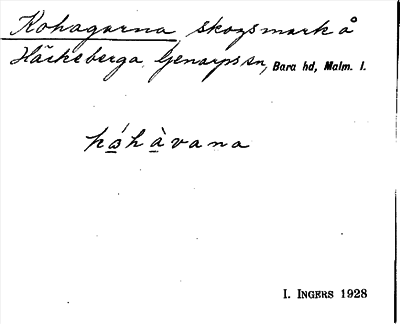 Kohagarna, skogsmark å
Häckeberga, Genarps sn, Bara hd, Malm. l.
kóhàvana
I. INGERS 1928